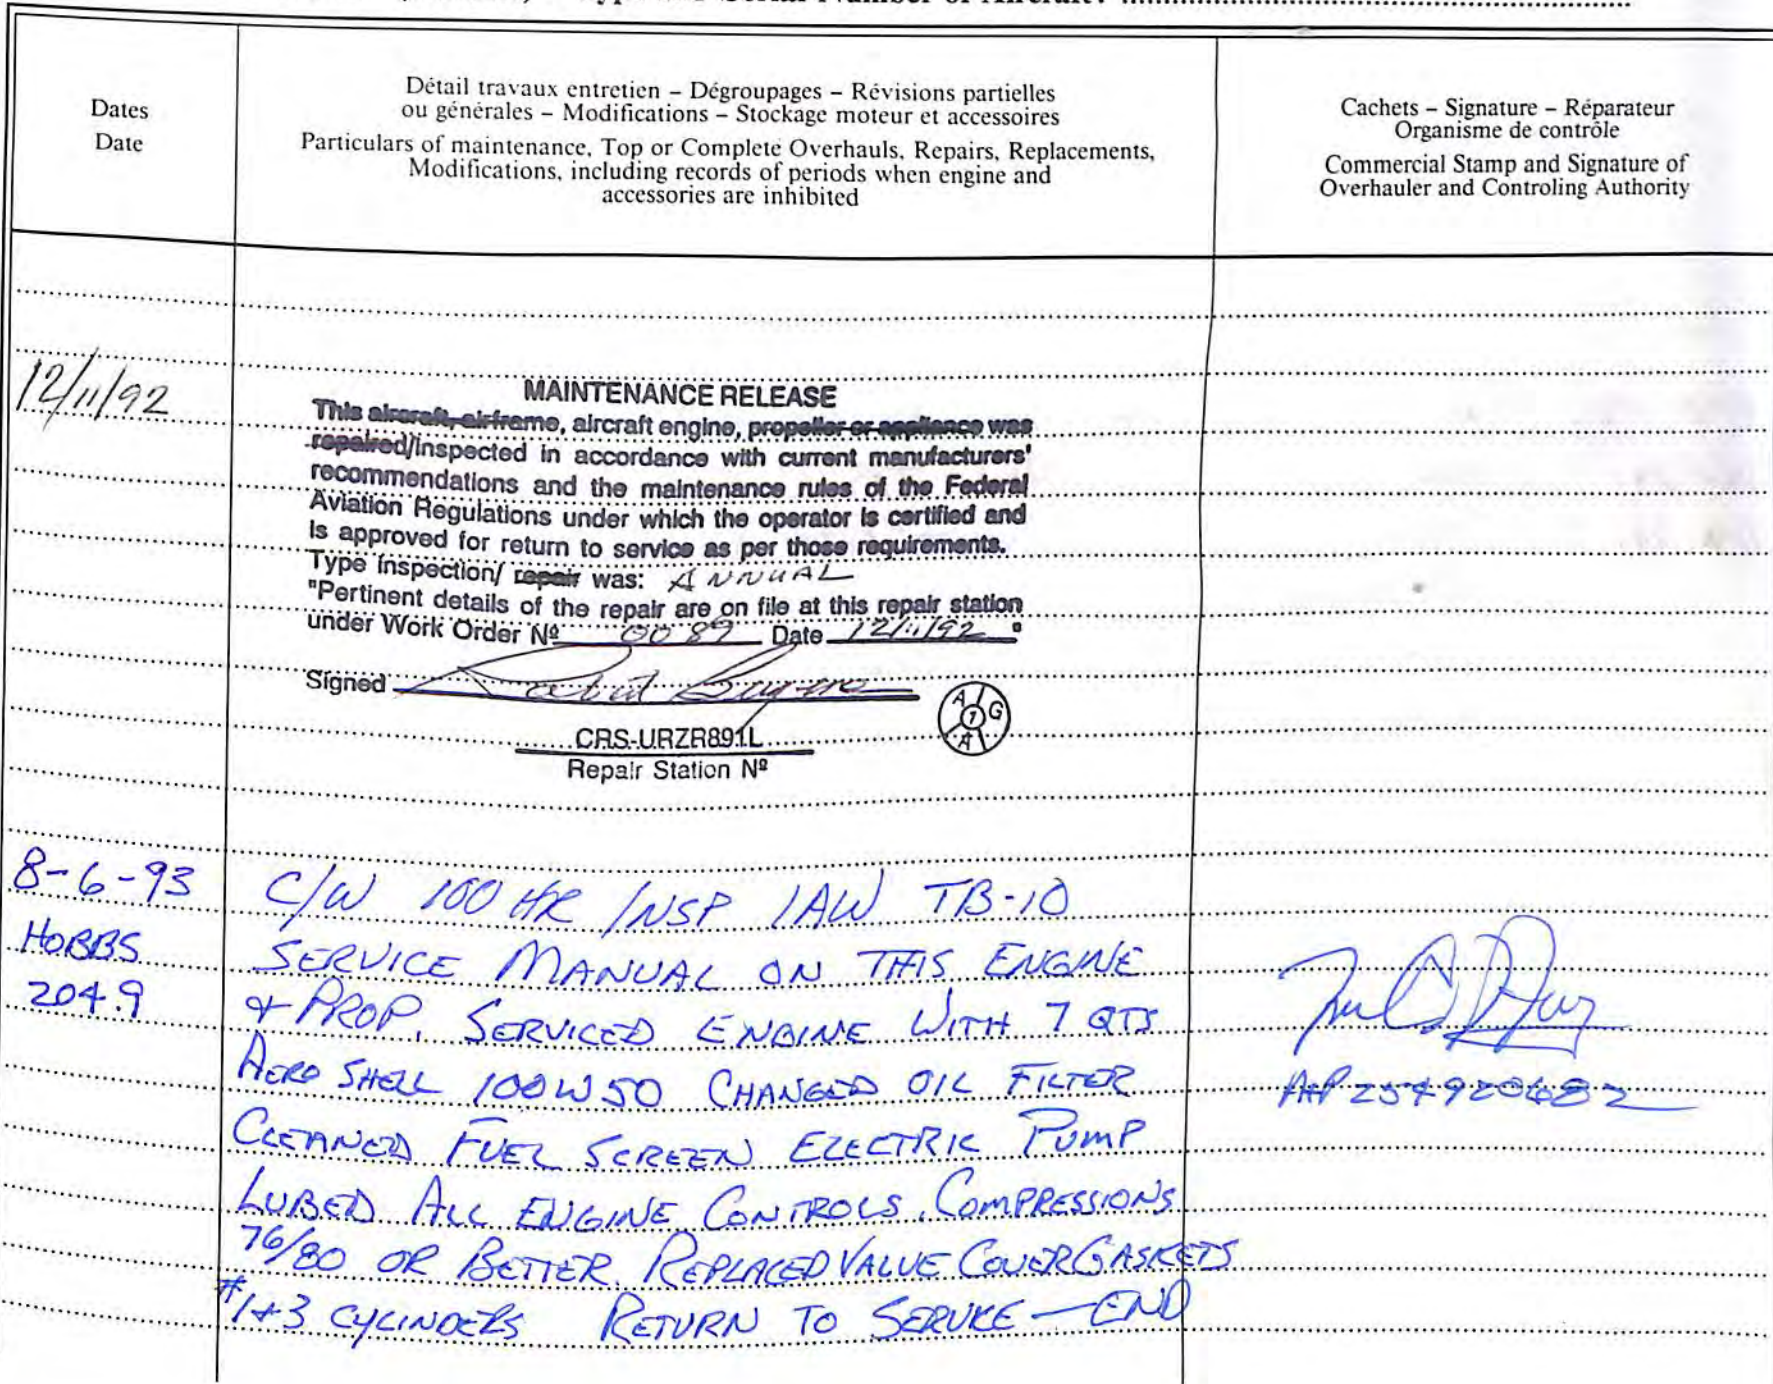 Serial Number of Aircraft :
Dates
Date
Détail travaux entretien – Dégroupages – Révisions partielles
ou générales – Modifications – Stockage moteur et accessoires
Particulars of maintenance, Top or Complete Overhauls, Repairs, Replacements,
Modifications, including records of periods when engine and
accessories are inhibited
Cachets – Signature – Réparateur
Organisme de contrôle
Commercial Stamp and Signature of
Overhauler and Controling Authority
12/11/92
MAINTENANCE RELEASE
This aircraft, airframe, aircraft engine, propeller or appliance was
repaired/inspected in accordance with current manufacturers'
recommendations and the maintenance rules of the Federal
Aviation Regulations under which the operator is certified and
is approved for return to service as per those requirements.
Type Inspection/ repair was: ANNUAL
"Pertinent details of the repair are on file at this repair station
under Work Order Nº 0089 Date 12/11/92 "
Signed
A G A 7
CRS-URZR891L
Repair Station Nº
8-6-93
HOBBS
204.9
C/W 100 HR INSP IAW TB-10
SERVICE MANUAL ON THIS ENGINE
& PROP. SERVICED ENGINE WITH 7 QTS
AERO SHELL 100W50 CHANGED OIL FILTER
CLEANED FUEL SCREEN ELECTRIC PUMP
LUBED ALL ENGINE CONTROLS. COMPRESSIONS
76/80 OR BETTER. REPLACED VALUE COVER GASKETS
#1+3 CYLINDERS RETURN TO SERVICE — END
A&P 254920482